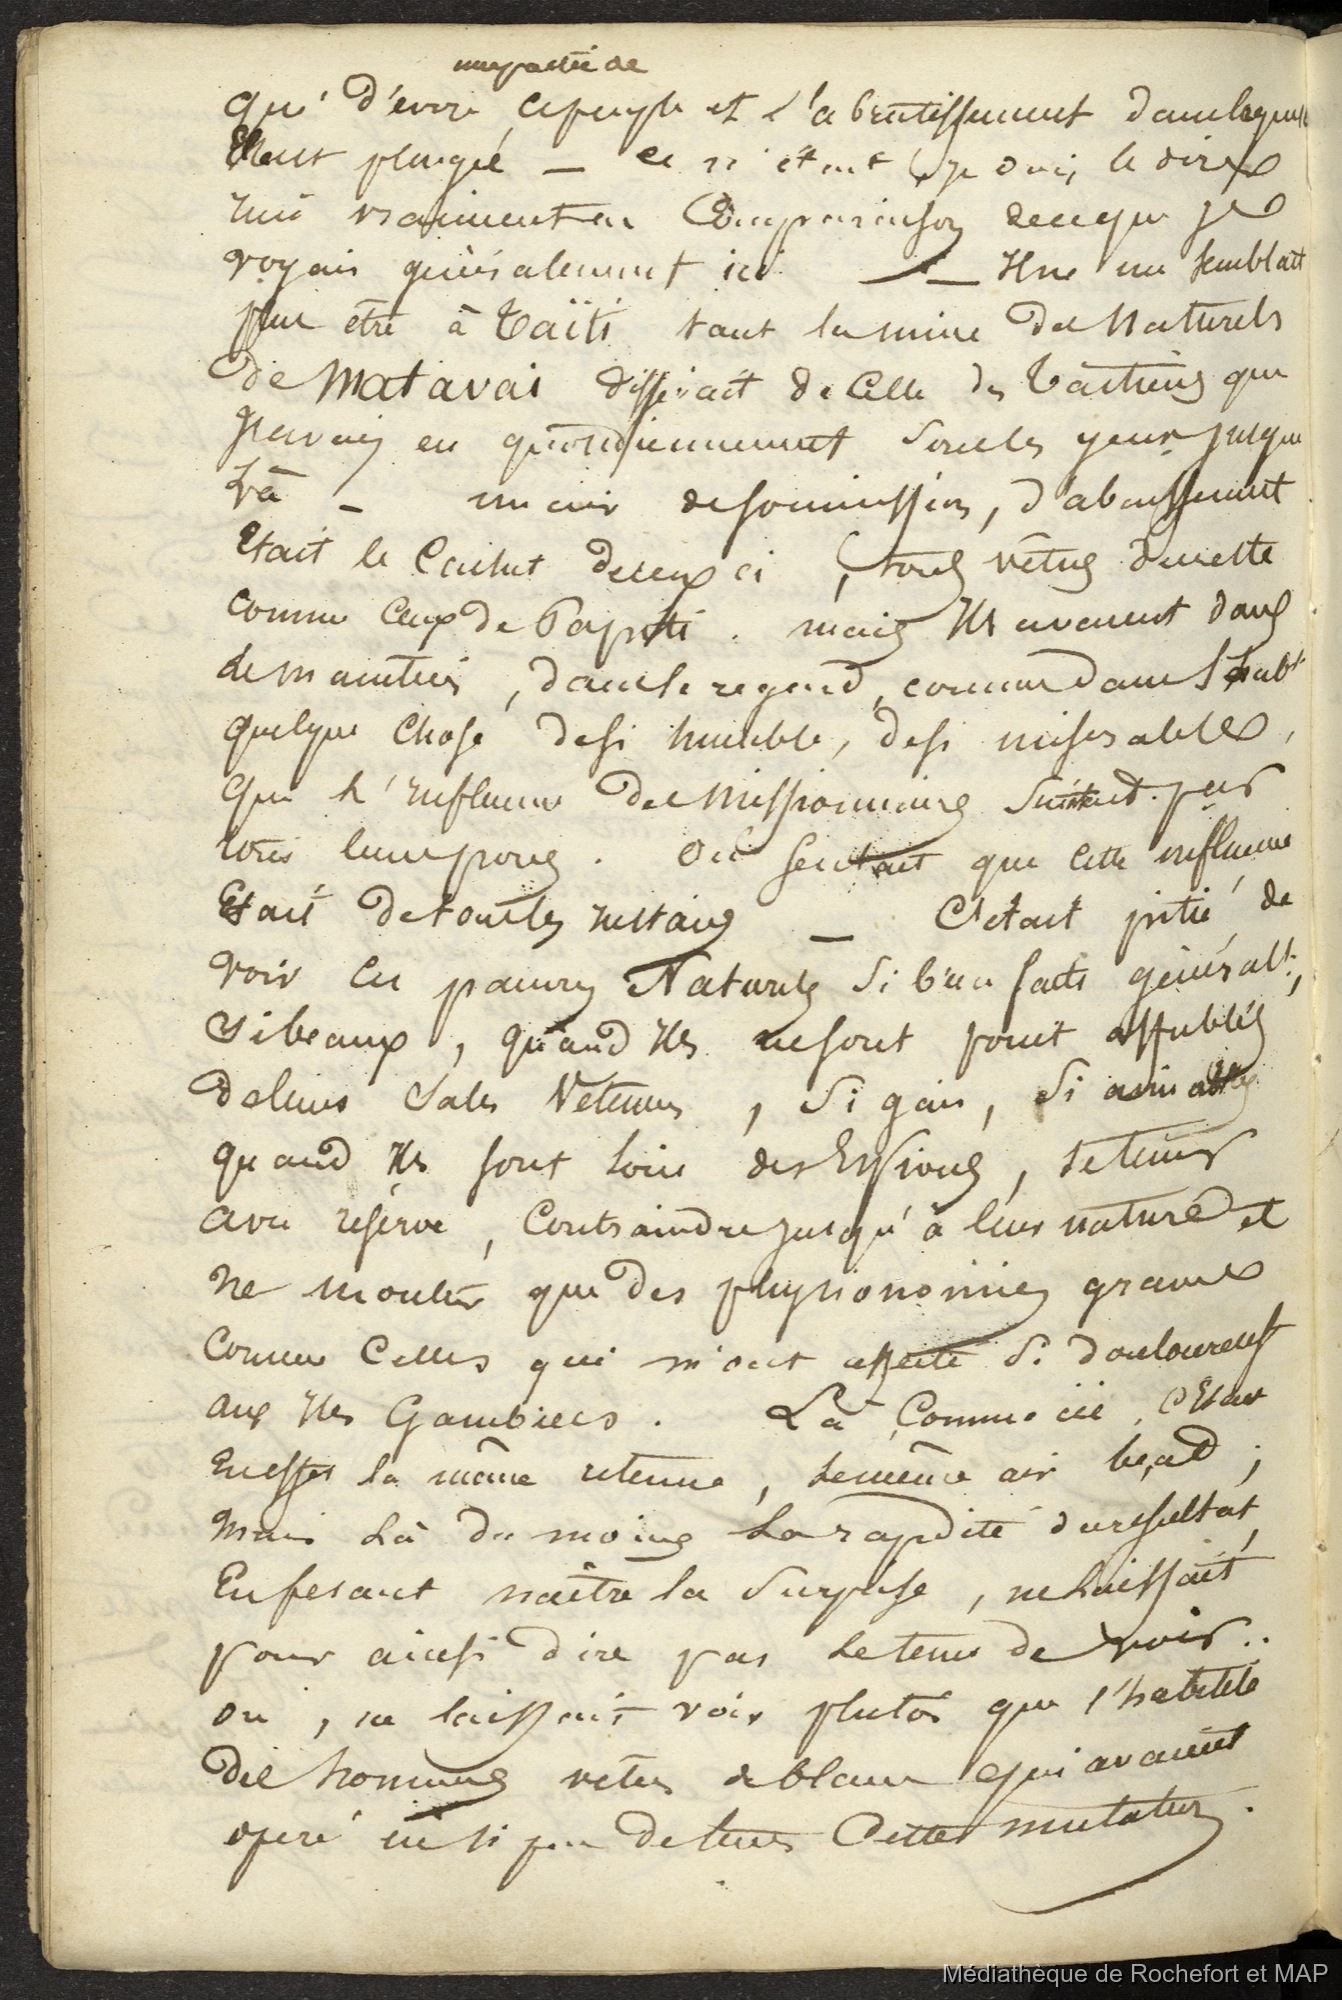 une partie de
qu' d'évoir ce peuple et l'abrutissement dans lequel
Il est plongé — ce n'était, je dois le dire
rien vraiment en Comparaison de ce que je
voyais généralement ici — Il ne me semblait
plus être à Taïti tant la mine des Naturels
de Matavai différait de Celle des Taïtiens que
J'avais eu quotidiennement sous les yeux jusque
Là — un air de soumission, d'abaissement
Etait le Cachet de ceux ci, tous vêtus du reste
comme Ceux de Papeïti. mais Ils avaient dans
le maintien, dans le regard, comme dans l'habt
quelque chose de si humble, de si misérable,
que l'Influence des Missionnaires s'
Était de tous les Instans — C'était pitié de
voir ces pauvres Naturels si bien faits généralt,
si beaux, quand Ils ne sont point affublés
de leurs sales Vêtemens, si gais, si aimables
quand Ils sont loin des Espions, se tenir
avec réserve, Contraindre jusqu'à leur nature et
ne montrer que des physionomies graves
Comme Celles qui m'ont affecté si douloureust
aux Iles Gambiers. Là Comme ici, C'Etait
En effet la même retenue, le même air béat;
mais Là du moins La rapidité du résultat,
En fesant naître la surprise, ne laissait
pour ainsi dire pas le tems de voir..
ou, ne laissait voir plutôt que l'habileté
des hommes vêtus de blanc qui avaient
opéré en si peu de tems Cette mutation.
Médiathèque de Rochefort et MAP